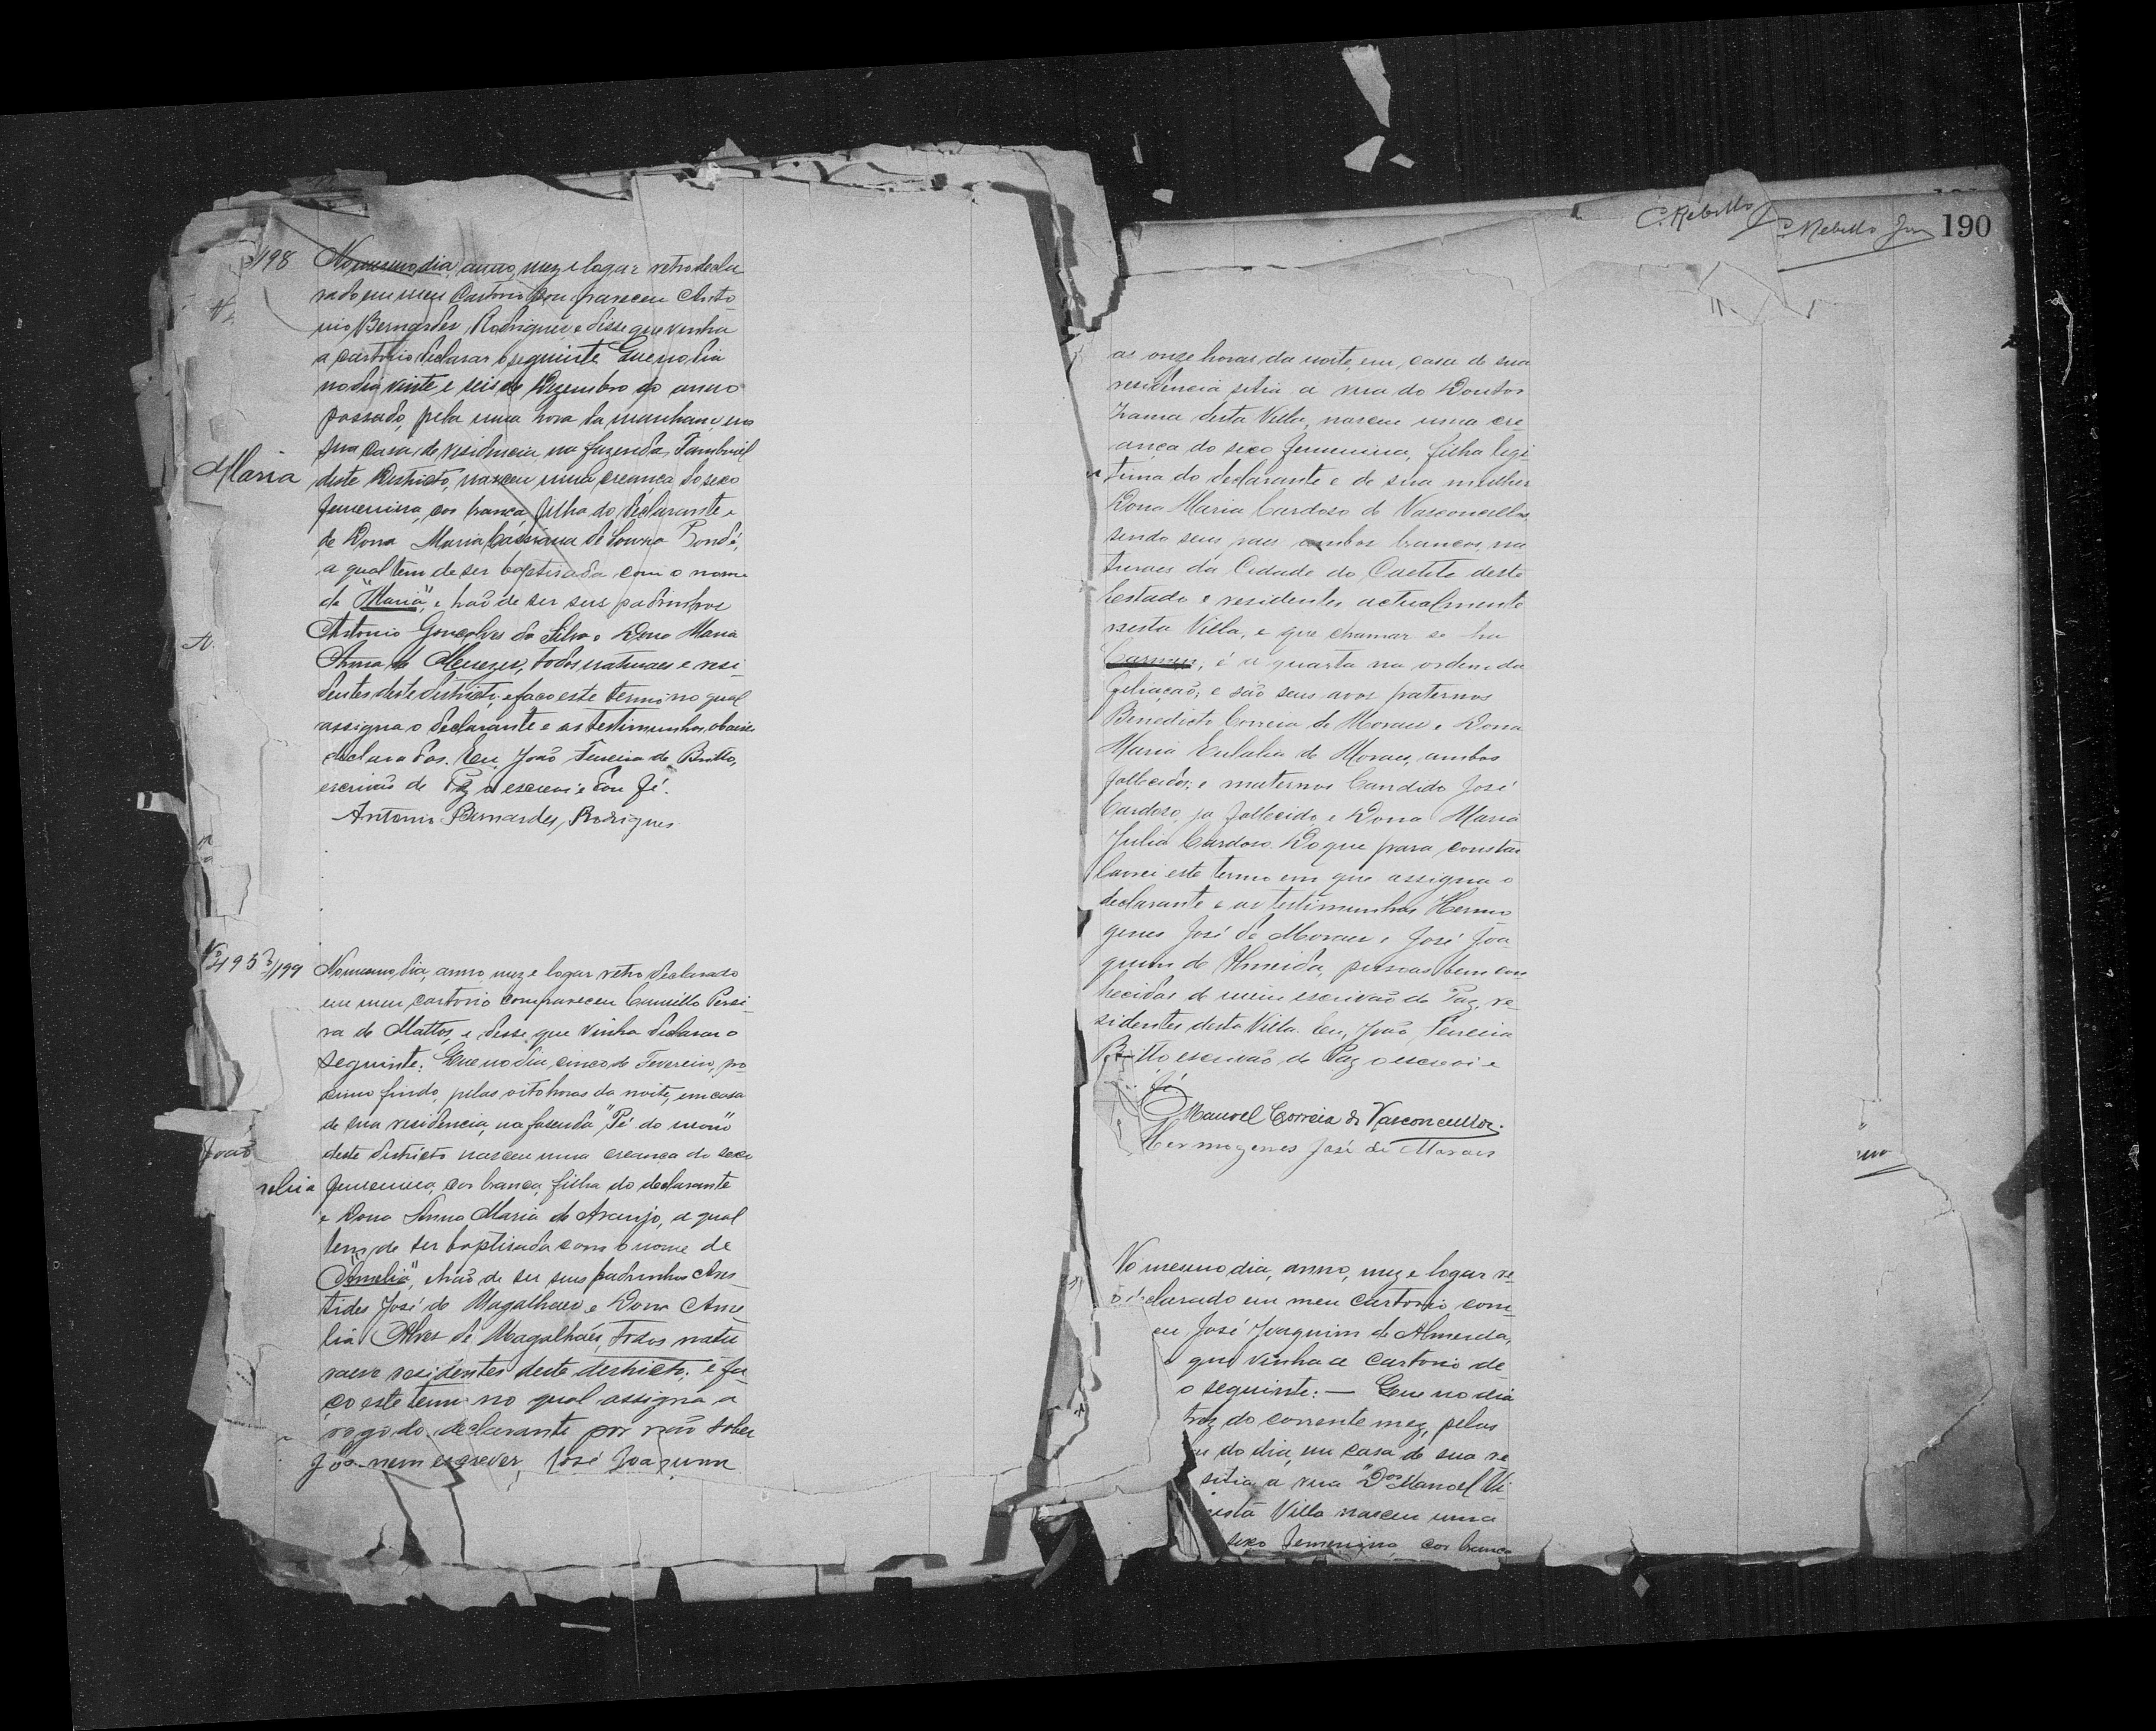 198
No mesmo dia, anno, mez e logar retro decla
rado em meu Cartorio compareceu Anto
nio Bernardes Rodrigues e disse que vinha
a cartorio declarar o seguinte Que no dia
no dia vinte e seis de Dezembro do anno
passado, pela uma hora da manhan, em
sua casa de residencia na fazenda Tamboril
Maria
deste Districto, nasceu uma creança do sexo
femenino, cor branca, filha do declarante e
de Dona Maria Cassiana de Souza Rondó,
a qual tem de ser baptisada com o nome
de "Maria", e hão de ser seus padrinhos
Antonio Gonçalves da Silva e Dona Maria
Anna de Menezes, todos naturaes e resi
dentes deste districto; e faço este termo no qual
assigna o declarante e as testimunhas abaixo
declaradas. Eu João Ferreira de Britto,
escrivão de Paz o escrevi e dou fé.
Antonio Bernardes Rodrigues
199
No mesmo dia, anno mez e logar retro declarado
em meu cartorio compareceu Camillo Perei
ra de Mattos, e disse que vinha declarar o
seguinte: Que no dia cinco de Fevereiro, pro
ximo findo, pelas oito horas da noite, em casa
de sua residencia, na fasenda "Pé do morro"
deste districto nasceu uma creança do sexo
femenino, cor branca, filha do declarante
e Dona Anna Maria de Araujo, a qual
tem de ser baptisada com o nome de
"Amelia", e hão de ser seus padrinhos Aris
tides José de Magalhaes e Dona Ame
lia Alves de Magalhães, todos natu
raes e residentes deste destricto; e fa
ço este termo no qual assigna a
rogo do declarante por não saber
ler nem escrever, José Joaquim
C. Rebello
C. Rebello Jun
190
as onze horas da noite, em casa de sua
residencia sitia a rua do Doutor
Zama desta Villa, nasceu uma cre
ança do sexo femenino, filha legi
tima do declarante e de sua mulher
Dona Maria Cardoso de Vasconcellos
sendo seus paes ambos brancos, na
turaes da Cidade do Caetite deste
Estado e residentes actualmente
nesta Villa, e que chamar se ha
Carmen; é a quarta na ordem da
filiação; e são seus avos paternos
Benedicto Correia de Moraes e Dona
Maria Eulalia de Moraes, ambos
fallecidos; e maternos Candido José
Cardoso, ja fallecido e Dona Maria
Julia Cardoso. Do que para constar
lavrei este termo em que assigna o
declarante e as testimunhas Hermo
genes José de Moraes e José Joa
quim de Almeida, pessoas bem con
hecidas de mim escrivão de Paz, re
sidentes desta Villa. Eu, João Ferreira
Britto, escrivão de Paz o escrevi e
fé
Manoel Correia de Vasconcellos.
Hermogenes José de Moraes
No mesmo dia, anno, mez e logar re
clarado em meu cartorio com
eu José Joaquim de Almeida,
e que vinha a cartorio de
o seguinte: — Que no dia
trez do corrente mez, pelas
do dia, em casa de sua re
sitia a rua "Dor Manoel Vi
nesta Villa nasceu uma
sexo femenino, cor branca